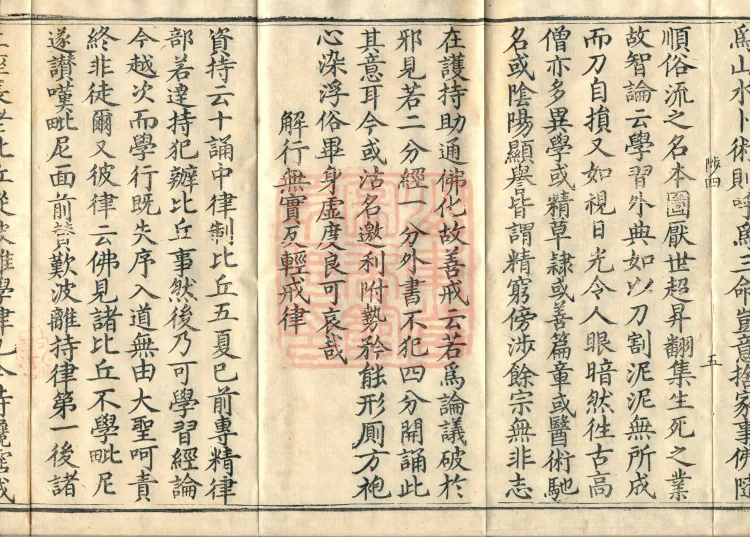 爲山水卜術則呼爲三命豈意捨家事佛隨
陟四
五
順俗流之名本圖厭世超昇翻集生死之業
故智論云學習外典如以刀割泥泥無所成
而刀自損又如視日光令人眼暗然徃古高
僧亦多異學或精草隷或善篇章或醫術馳
名或陰陽顯譽皆謂精窮傍涉餘宗無非志
在護持助通佛化故善戒云若爲論議破於
邪見若二分經一分外書不犯四分開誦此
其意耳今或沽名邀利附勢矜能形厠方袍
心染浮俗畢身虛度良可哀哉
解行無實反輕戒律
資持云十誦中律制比丘五夏已前專精律
部若達持犯辦比丘事然後乃可學習經論
今越次而學行既失序入道無由大聖呵責
終非徒爾又彼律云佛見諸比丘不學毗尼
遂讃嘆毗尼面前讃歎波離持律第一後諸
比丘從波離學律已今時纔